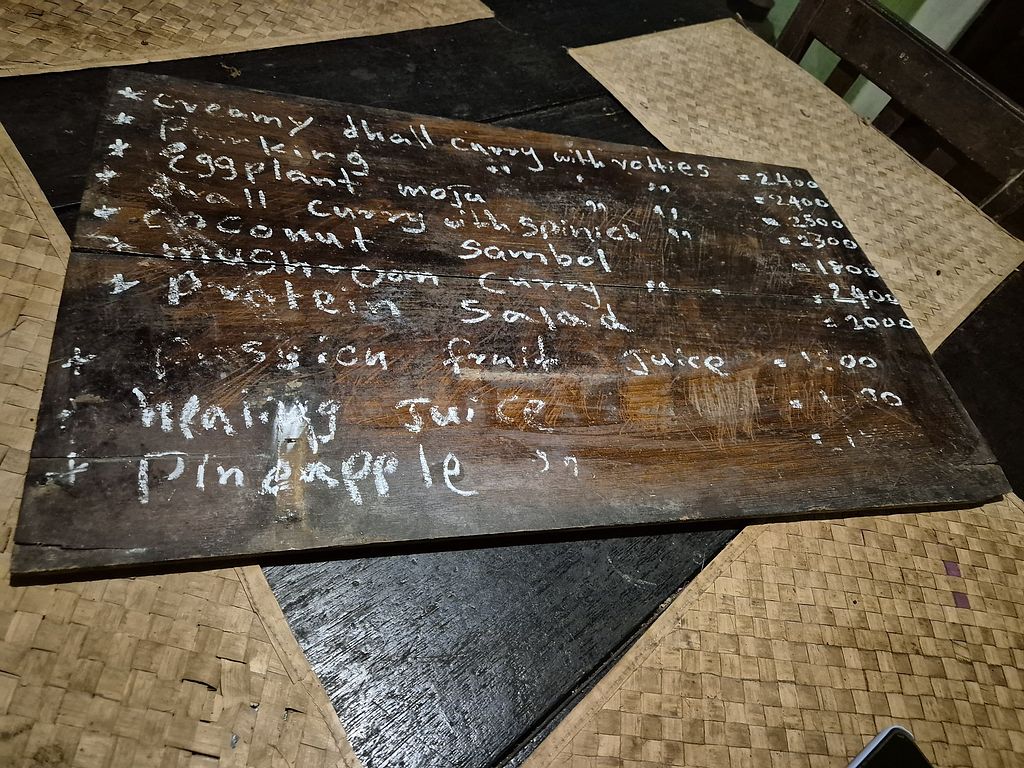 * Creamy dhall curry with rotties = 2400
* Pumking " " " = 2400
* Eggplant moja " " = 2500
* dhall curry with spinich " = 2300
* coconut Sambol = 1800
* mushroom curry " " = 2400
* Protein Salad = 2000
* Passion fruit juice
* healing Juice
* Pineapple " "